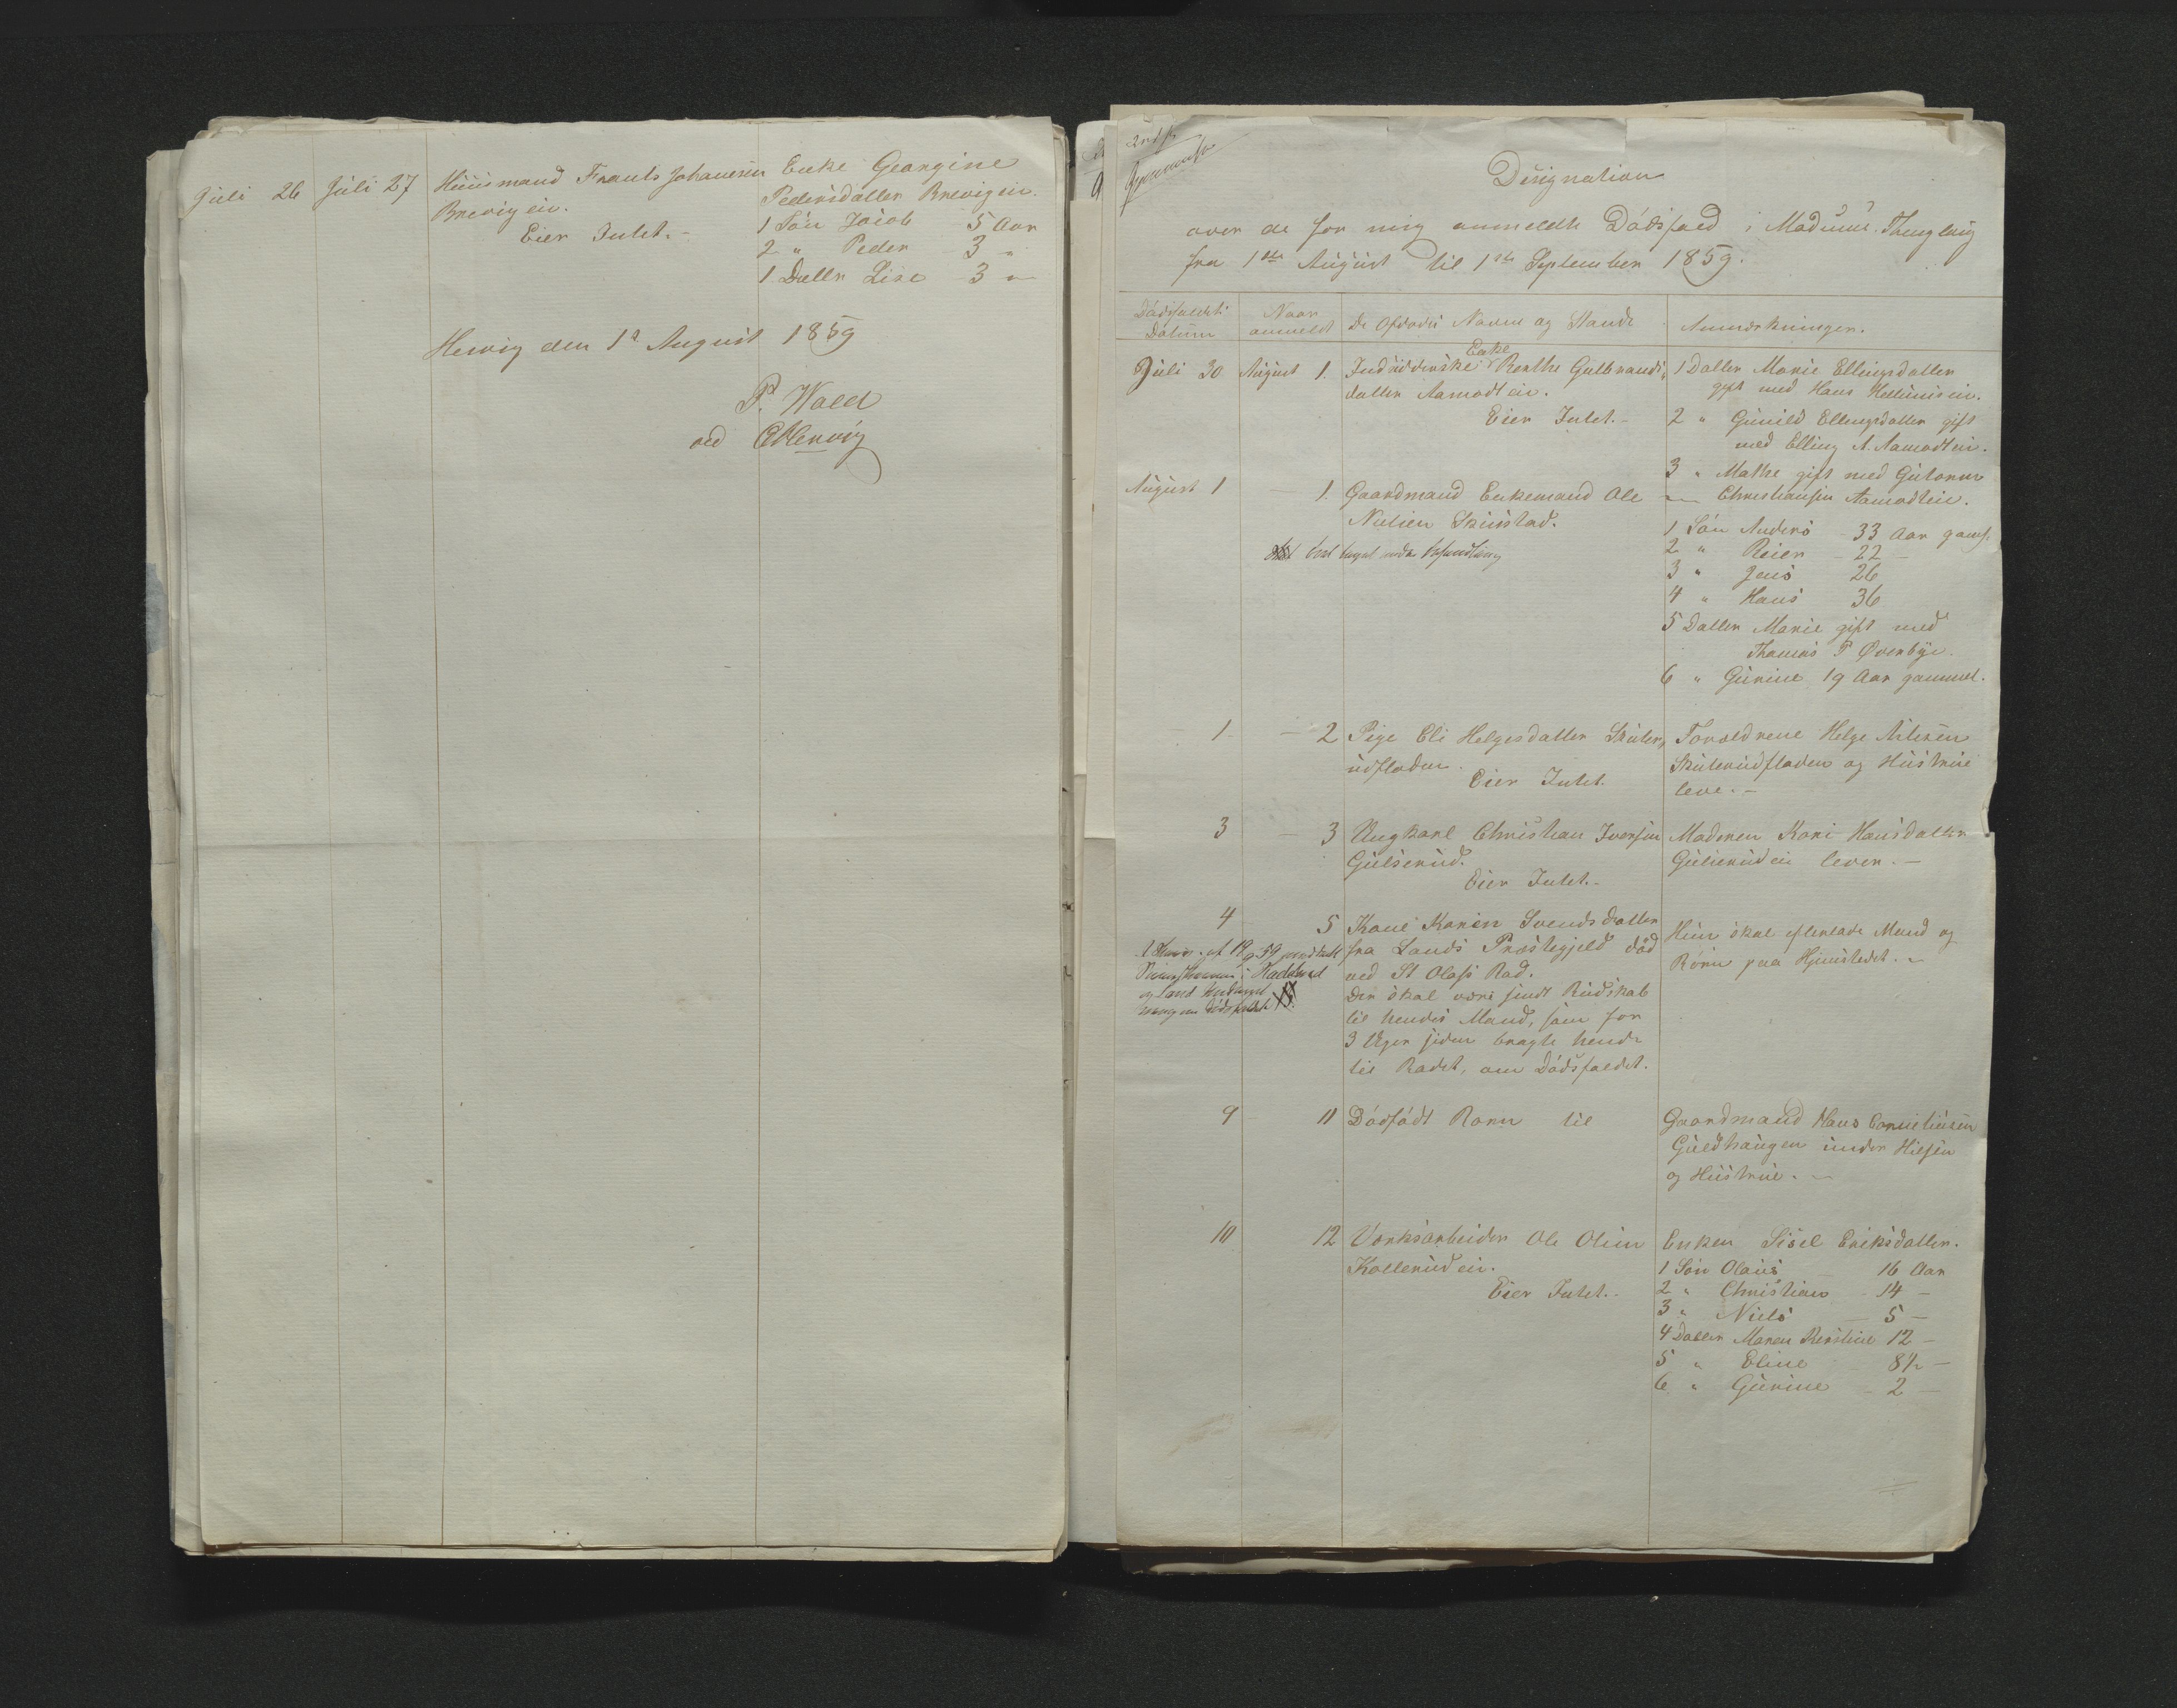 Juli 26 Juli 27 Huusmand Frants Johannesen Enke Georgine
Brevigeie. Pedersdatter Brevigeie.
Eier Intet.- 1 Søn Jacob 5 Aar
2 " Peder 3 "
1 Datter Lise 3 "
Hervig den 1ste August 1859
P. Wold
ved
Designation
over de for mig anmeldte Dödsfald i Modums Thinglaug
fra 1ste August til 1ste September 1859.
Dödsfaldets Datum
Naar anmeldt
De Afdødes Navne og Stand
Anmærkninger.
Juli 30 August 1. Indsidderske Enke Berthe Gulbrands-
datter Aamodt eie.
Eier Intet.-
1 Datter Marie Ellingsdatter
gift med Hans
2 " Gunild Ellingsdatter gift
med Elling A. Aamodteie.
3 " Mathe gift med Guttorm
Christiansen Aamodteie.
August 1 — 1. Gaardmand Enkemand Ole
Nielsen Skuistad.
taget under Behandling
1 Søn Anders - 33 Aar gaml.
2 " Reier - 22 -
3 " Jens 26
4 " Hans 36
5 Datter Marie gift med
Thomas P Øverbye.
6 " Gurine 19 Aar gammel.
- 1 - — 2 Pige Eli Helgesdatter Skuter-
udfladen.
Eier Intet.
Forældrene Helge
Skuterudfladen og Hustrue
leve.-
3 — 3 Ungkarl Christian Iversen
Gulserud.
Eier Intet.-
Moderen Kari Hansdatter
Gulserudeie lever.-
4 5 Kone Karen Svendsdatter
fra Lands Præstegjeld död
ved St Olafs Bad.
Der skal være sendt Budskab
til hendes Mand, som for
3 Uger siden bragte hende
til Badet, om Dödsfaldet.
Hun skal efterlade Mand og
Börn paa Hjemstedet.-
i Hadeland
og Land
om Dödsfaldet
9 11 Dödfödt Barn til
Gaardmand Hans Corneliusen
Guldhaugen under
og Hustrue.-
10 12 Værksarbeider Ole Olsen
Kollerudeie.
Eier Intet.-
Enken Sisel Eriksdatter.
1 Søn Olaus 16 Aar
2 " Christian - 14 -
3 " Niels - 5 -
4 Datter Maren Kirstine 12 -
5 " Eline - 8½ -
6 " Gurine - 2 -